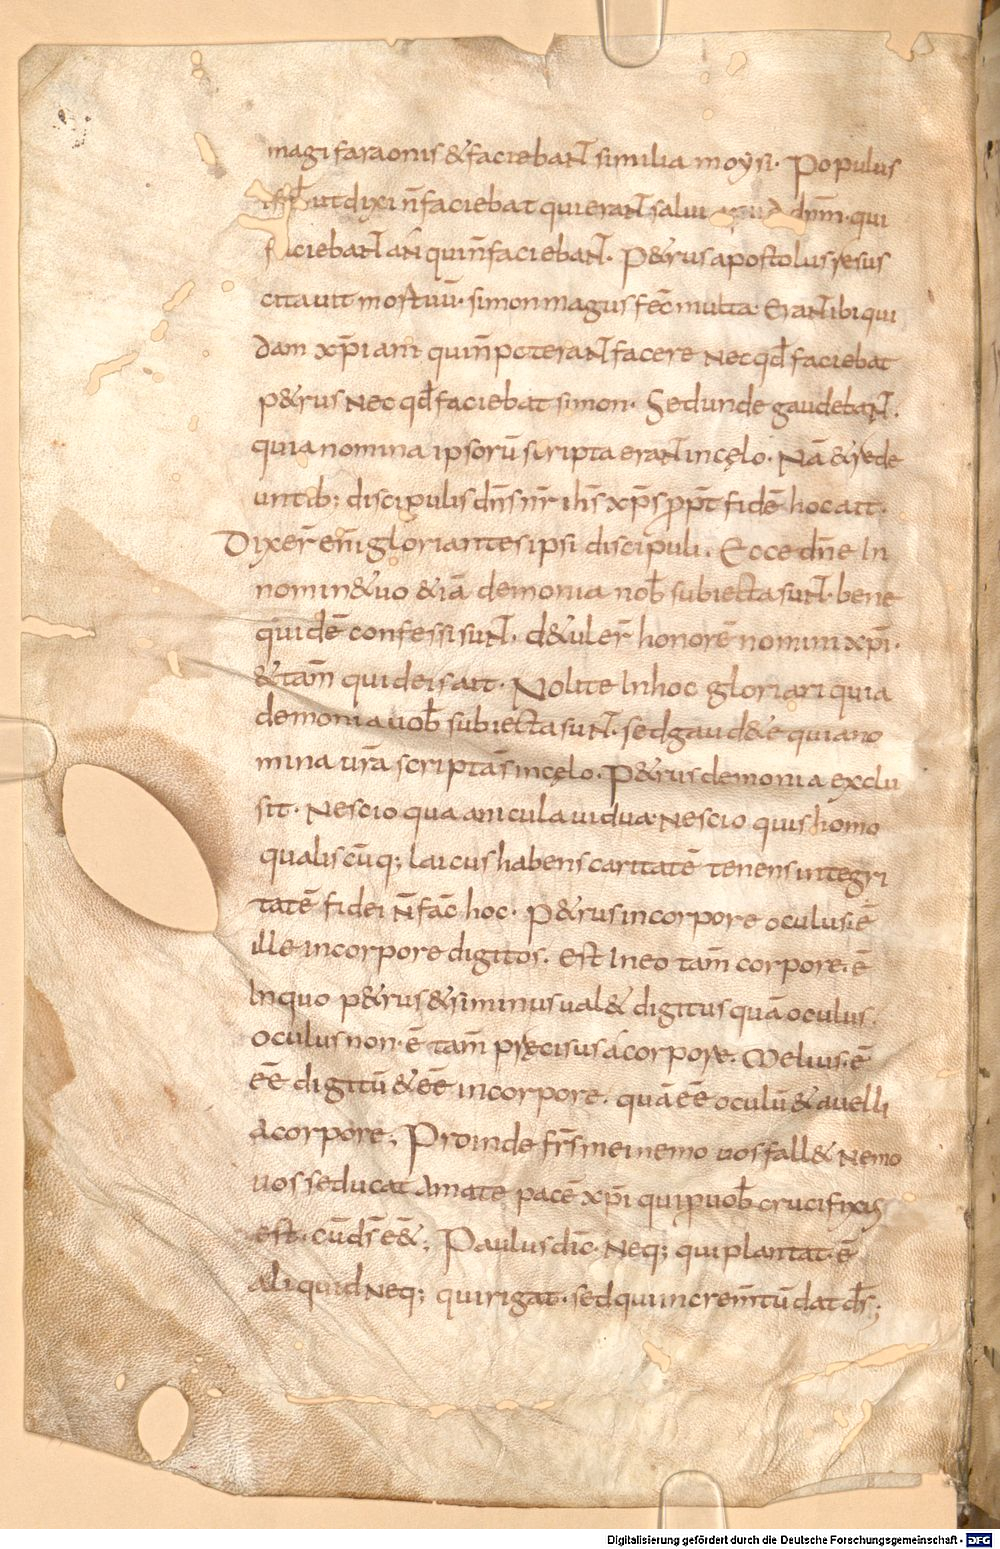 magi faraonis & faciebant similia moysi. Populus
isrl̄ ut dixi n̄ faciebat qui erant salui apud dn̄m. qui
faciebant an qui n̄ faciebant. P&rus apostolus resus
citauit mortuū. simon magus fec̄ multa. Erant ibi qui
dam xp̄iani qui n̄ poterant facere nec qd̄ faciebat
p&rus nec qd̄ faciebat simon. Sed unde gaudebant.
quia nomina ipsorū scripta erant in cęlo. Nā & rede
untib; discipulis dn̄s nr̄ ih̄s xp̄s ꝓpt̄ fidē hoc ait.
Dixer̄ eni̅ gloriantes ipsi discipuli. Ecce dn̄e In
nomin& uo & iā demonia nob̄ subiecta sunt. bene
quidē confessi sunt. d&uler̄ honorē nomini xp̄i.
& tam̄ quid eis ait. Nolite In hoc gloriari quia
demonia uob̄ subiecta sunt. sed gaud&e quia no
mina ur̄a scripta s̄ in cęlo. P&rus demonia exclu
sit. Nescio qua anicula uidua. Nescio quis homo
qualiscūq; laicus habens caritatē tenens integri
tatē fidei n̄ fac̄ hoc. P&rus in corpore oculus. ē
ille in corpore digitos. est In eo tam̄ corpore. ē
In quo p&rus & si minus ual& digitus quā oculus.
oculus non. ē tam̄ pręcisus a corpore. Melius. ē
ēē digitū & ēē in corpore. quā ēē oculū & auelli
a corpore; Proinde fr̄s mei nemo uos fall& nemo
uos seducat Amate pacē xp̄i qui ꝓ uob̄ crucifixus
est. cū ds̄ ēē&; Paulus dic̄. Neq; qui plantat. ē
Aliquid neq; qui rigat. sed qui increm̄tū dat ds̄;
Digitalisierung gefördert durch die Deutsche Forschungsgemeinschaft - DFG